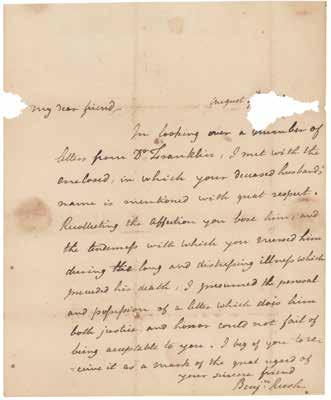 My dear friend August
In looking over a number of
letters from Dr Franklin, I met with the
enclosed, in which your deceased husband's
name is mentioned with great respect.
Recollecting the affection you bore him, and
the tenderness with which you nursed him
during the long and distressing illness which
preceded his death, I presumed the perusal
and possession of a letter which does him
both justice and honor could not fail of
being acceptable to you. I beg of you to re-
ceive it as a mark of the great regard of
your sincere friend
Benjn Rush